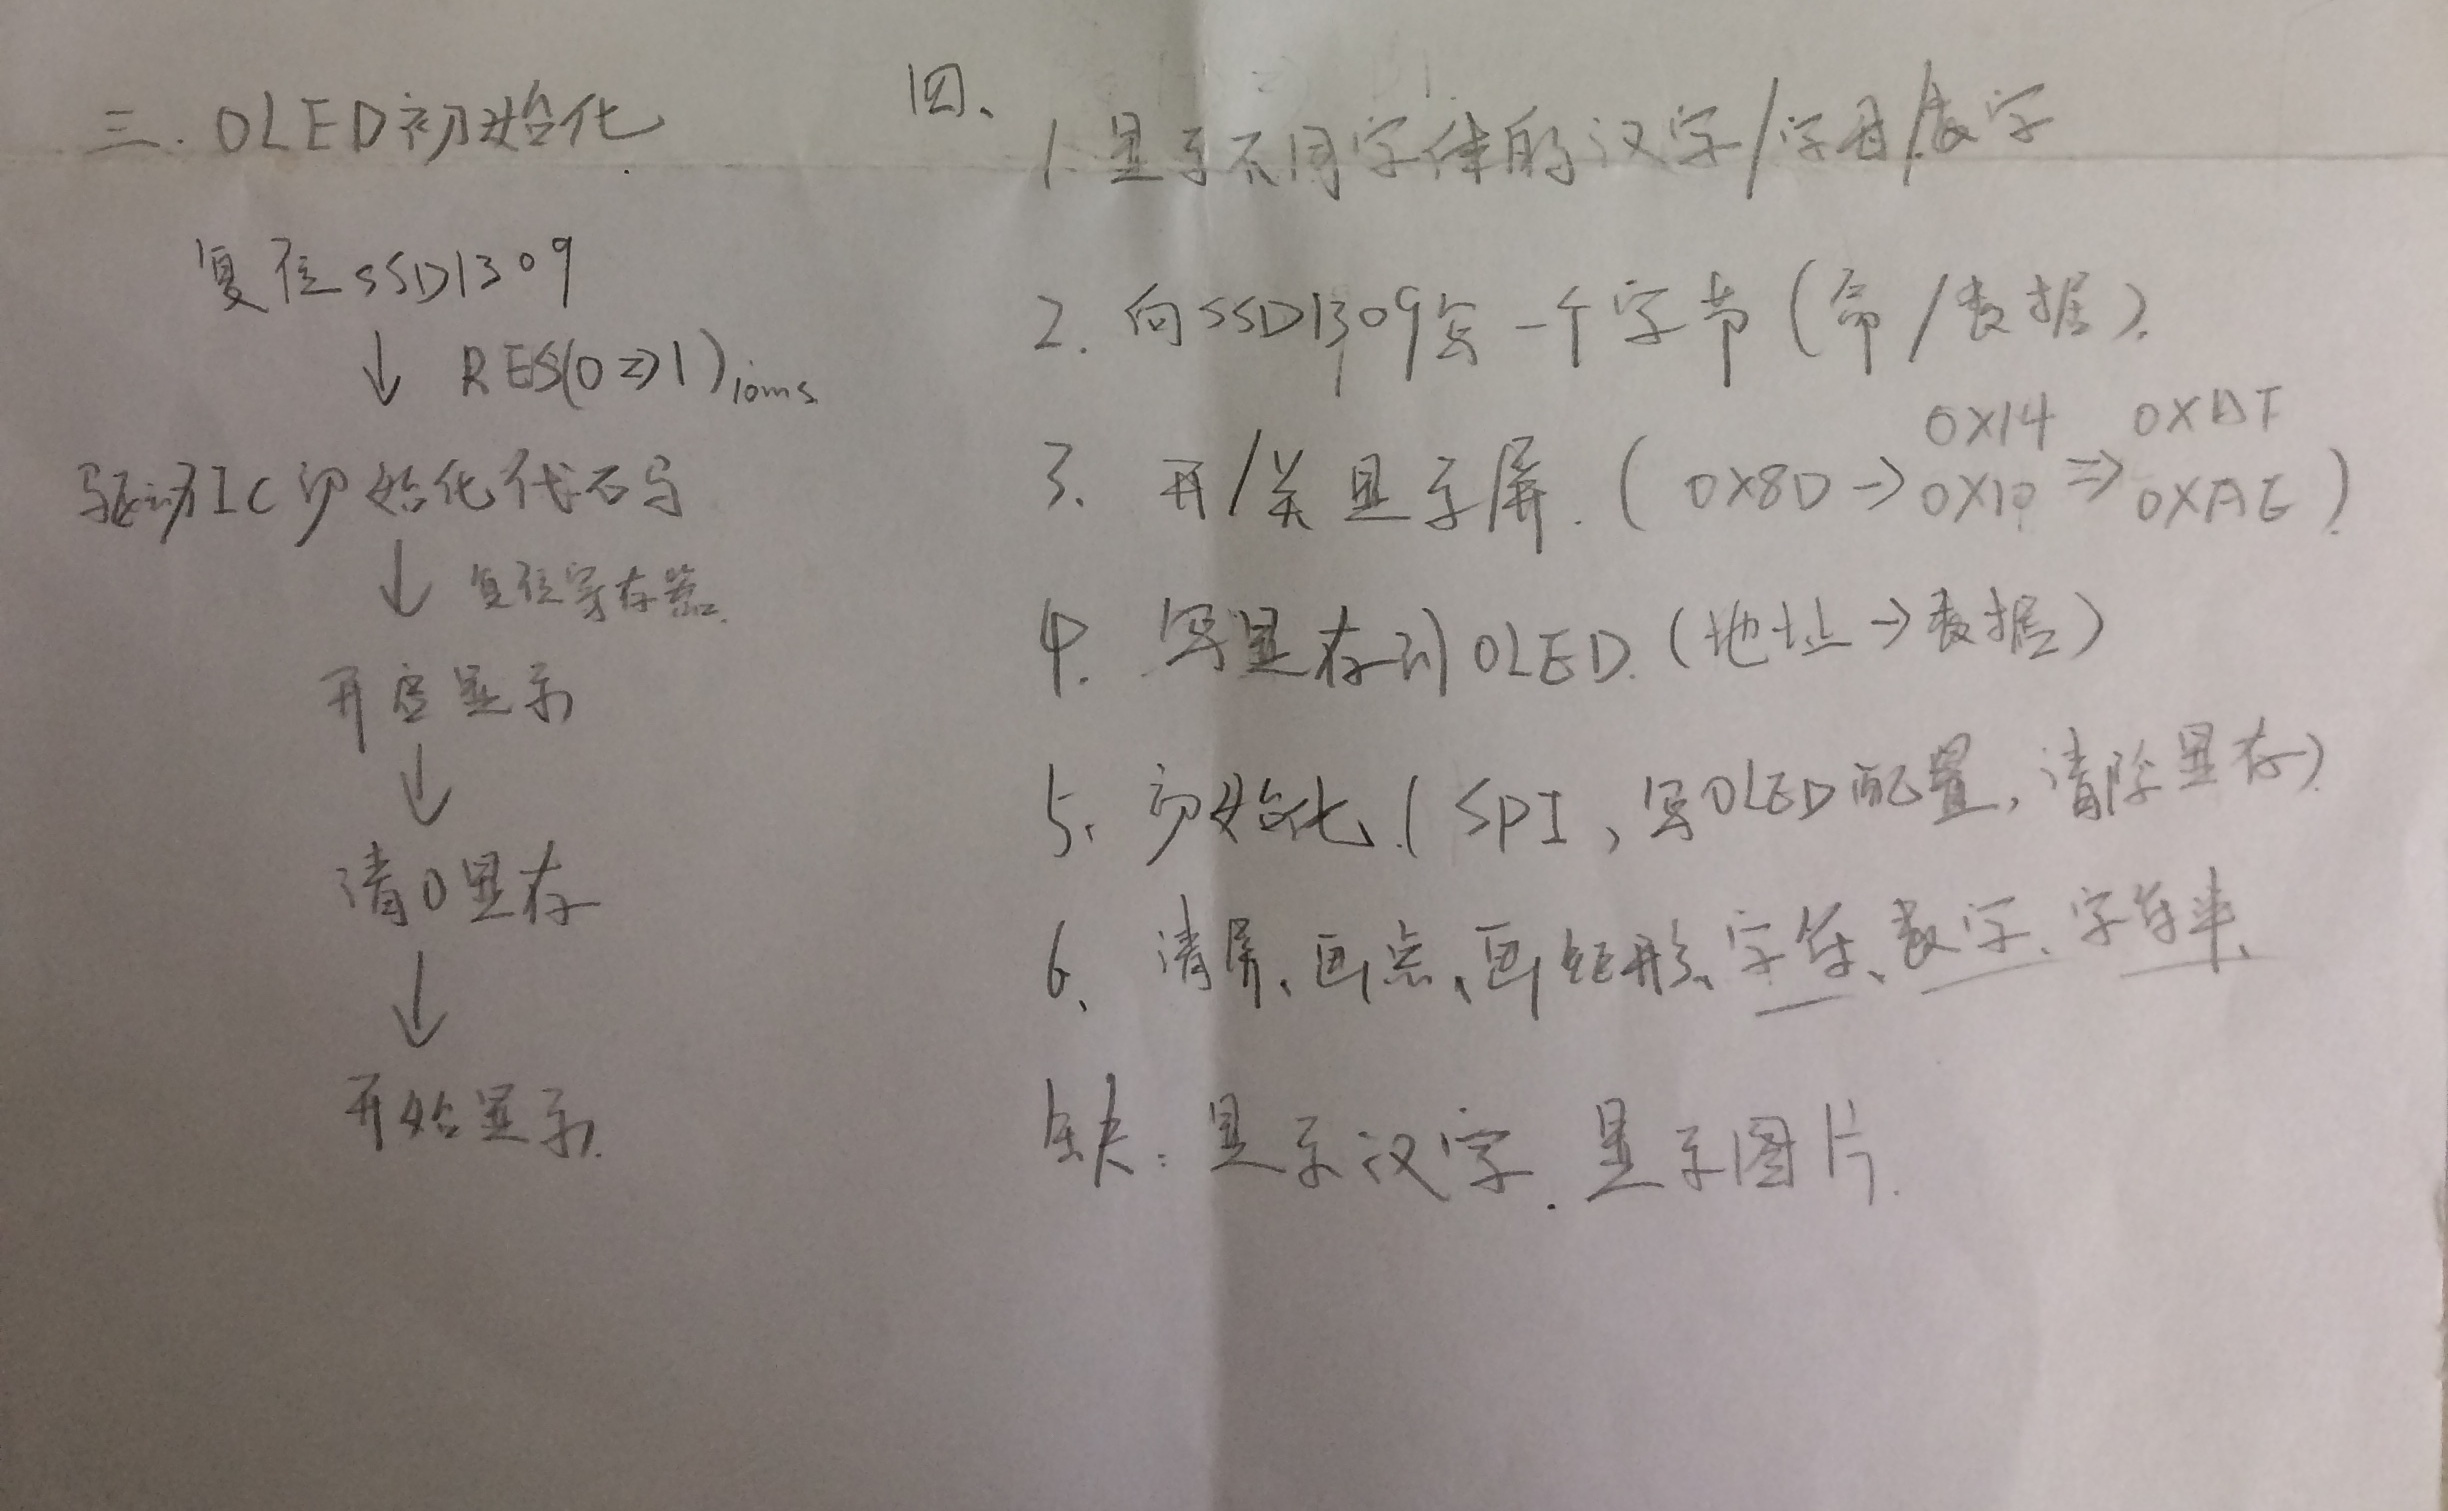 三.OLED初始化.
复位SSD1309
↓ RES(0⇒1)10ms
驱动IC初始化代码
↓ 复位寄存器.
开启显示
↓
清0显存
↓
开始显示.
四、
1.显示不同字体的汉字/字母/数字
2.向SSD1309写一个字节(命/数据).
0X14 0XAF
3、开/关显示屏.(0X8D→0X10⇒0XAE)
4.写显存到OLED.(地址→数据)
5、初始化.(SPI,写OLED配置,清除显存)
6、清屏、画点、画矩形、字符、数字、字符串、
缺:显示汉字.显示图片.